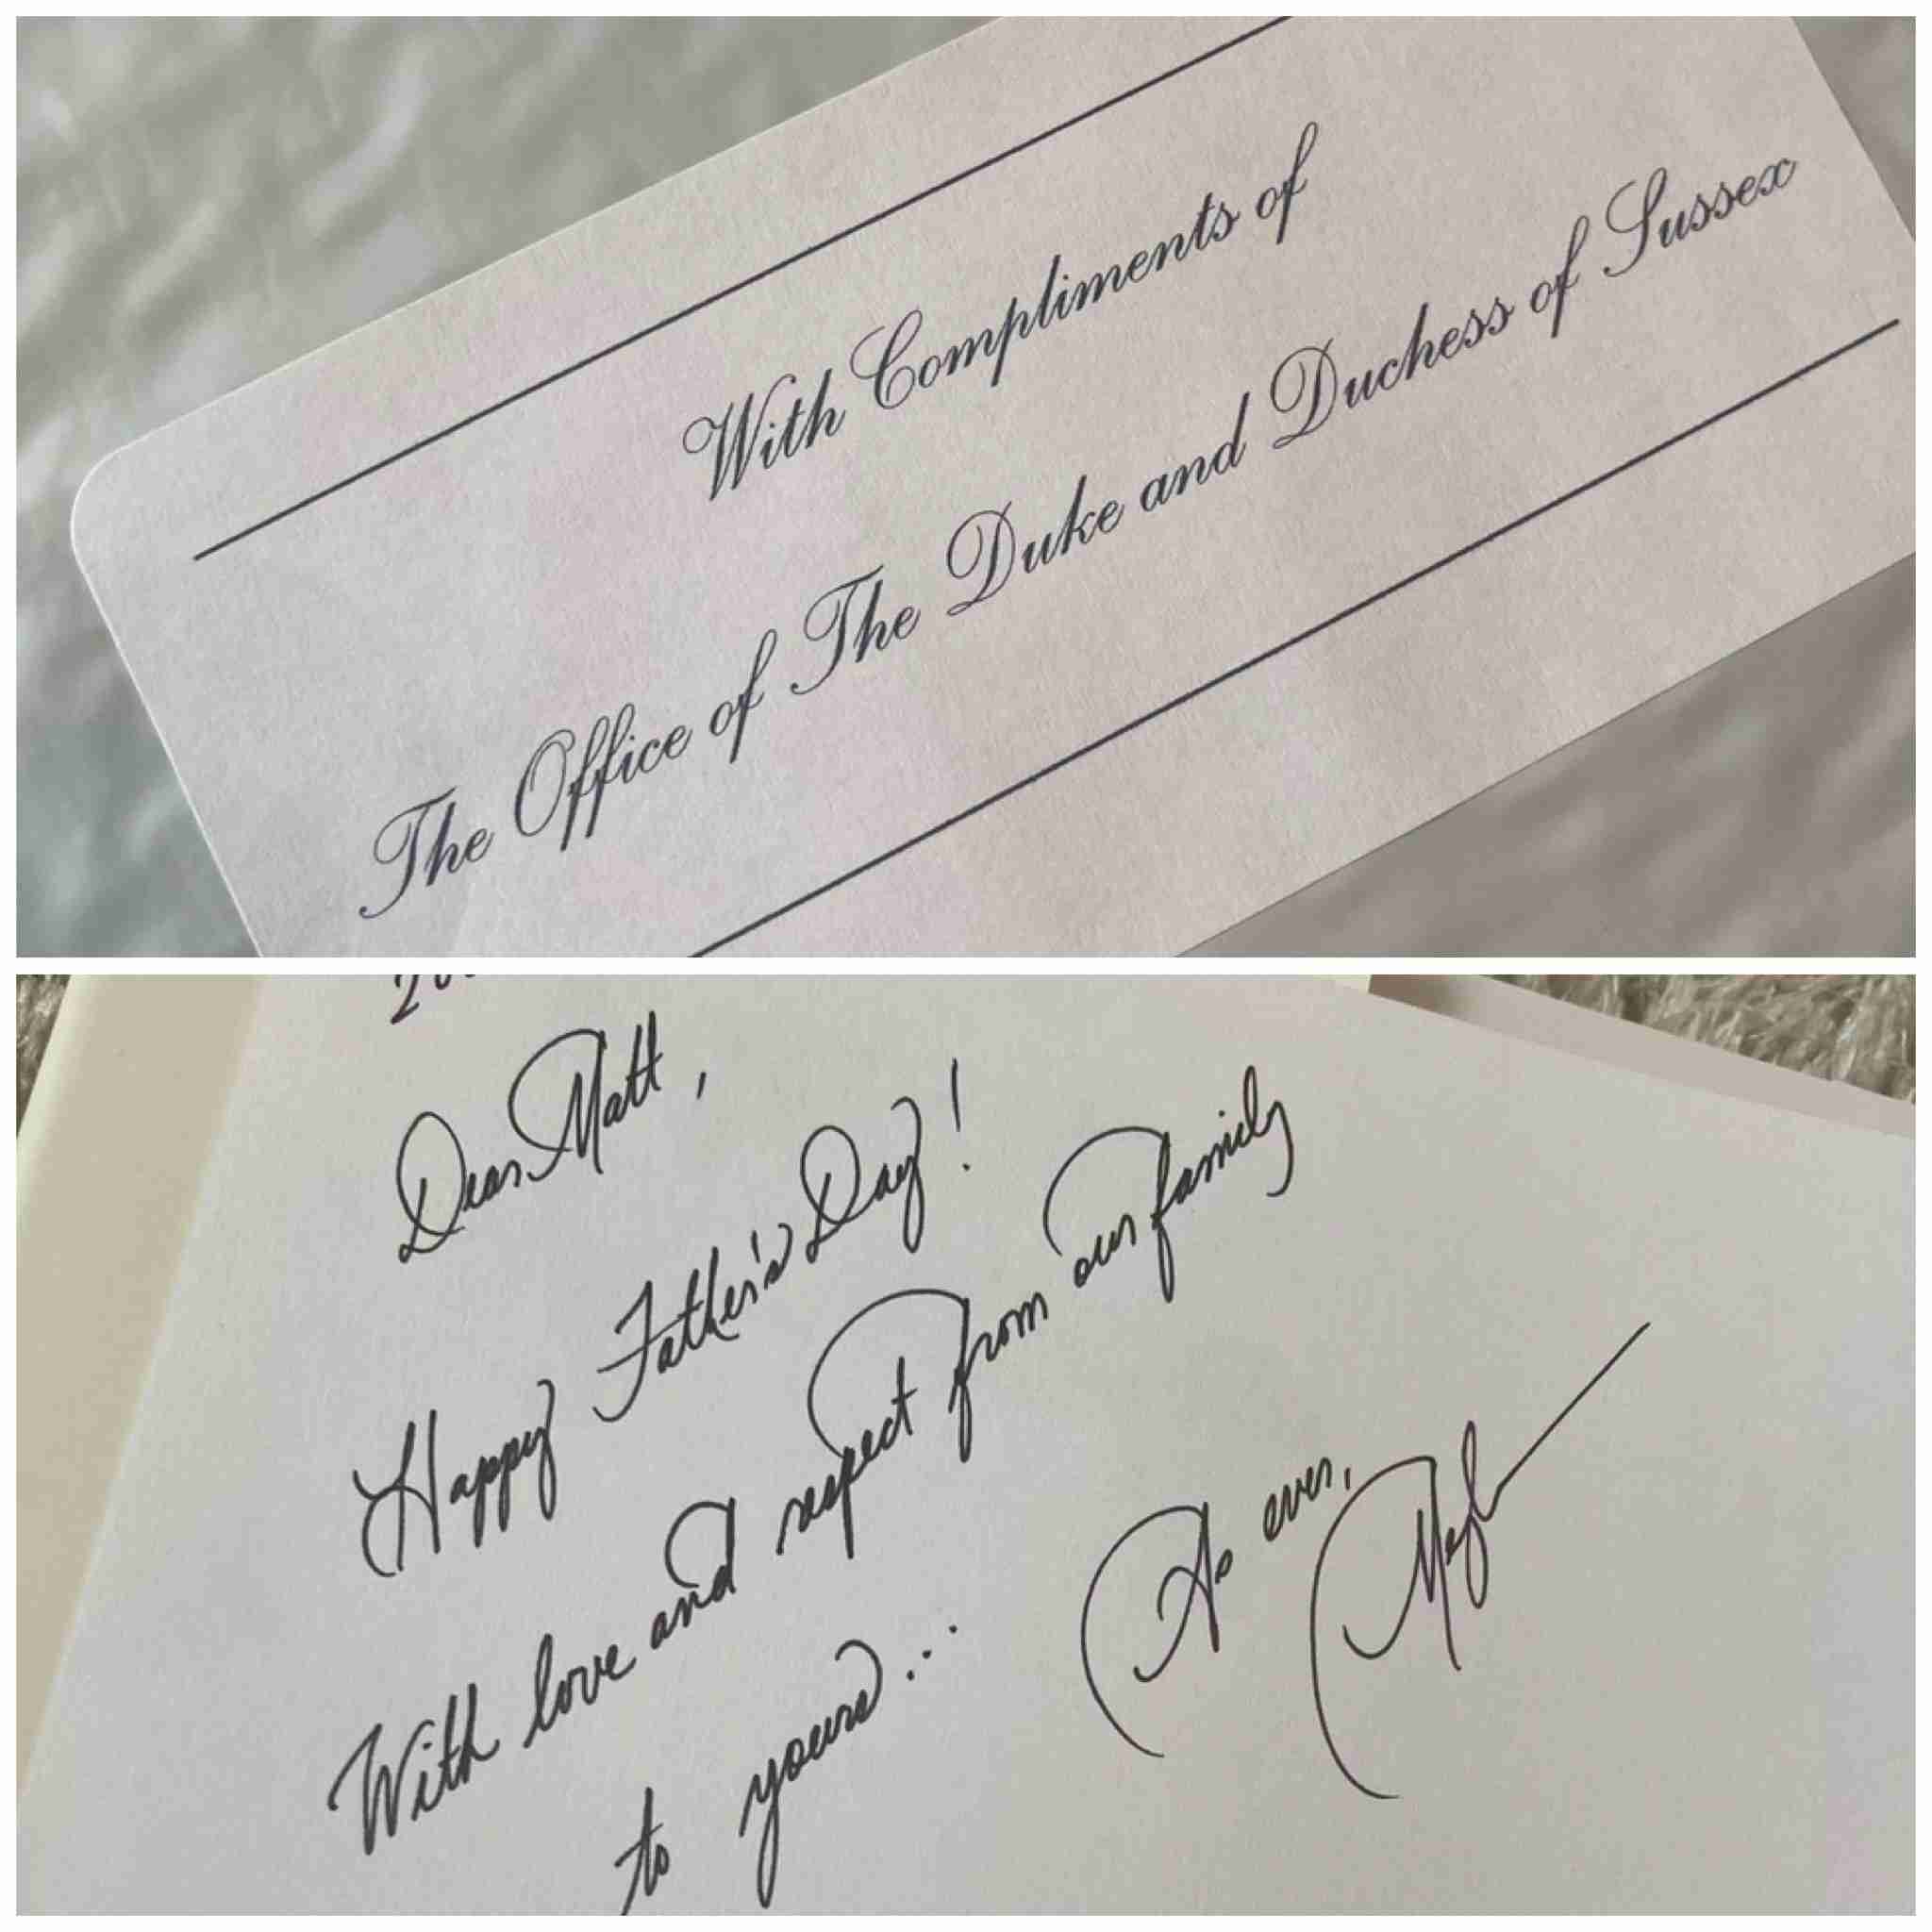 With Compliments of
The Office of The Duke and Duchess of Sussex
Dear Matt,
Happy Father's Day!
With love and respect from our family
to yours...
As ever,